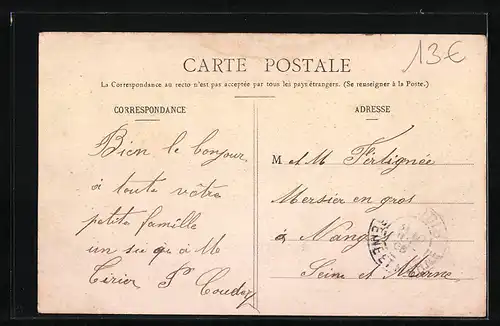 13€
CARTE POSTALE
La Correspondance au recto n'est pas acceptée par tous les pays étrangers. (Se renseigner à la Poste.)
CORRESPONDANCE
Bien le bonjour
à toute vôtre
petite famille
un
à M
ADRESSE
M et M Fertignée
Mersier en gros
à Nangis
Seine et Marne